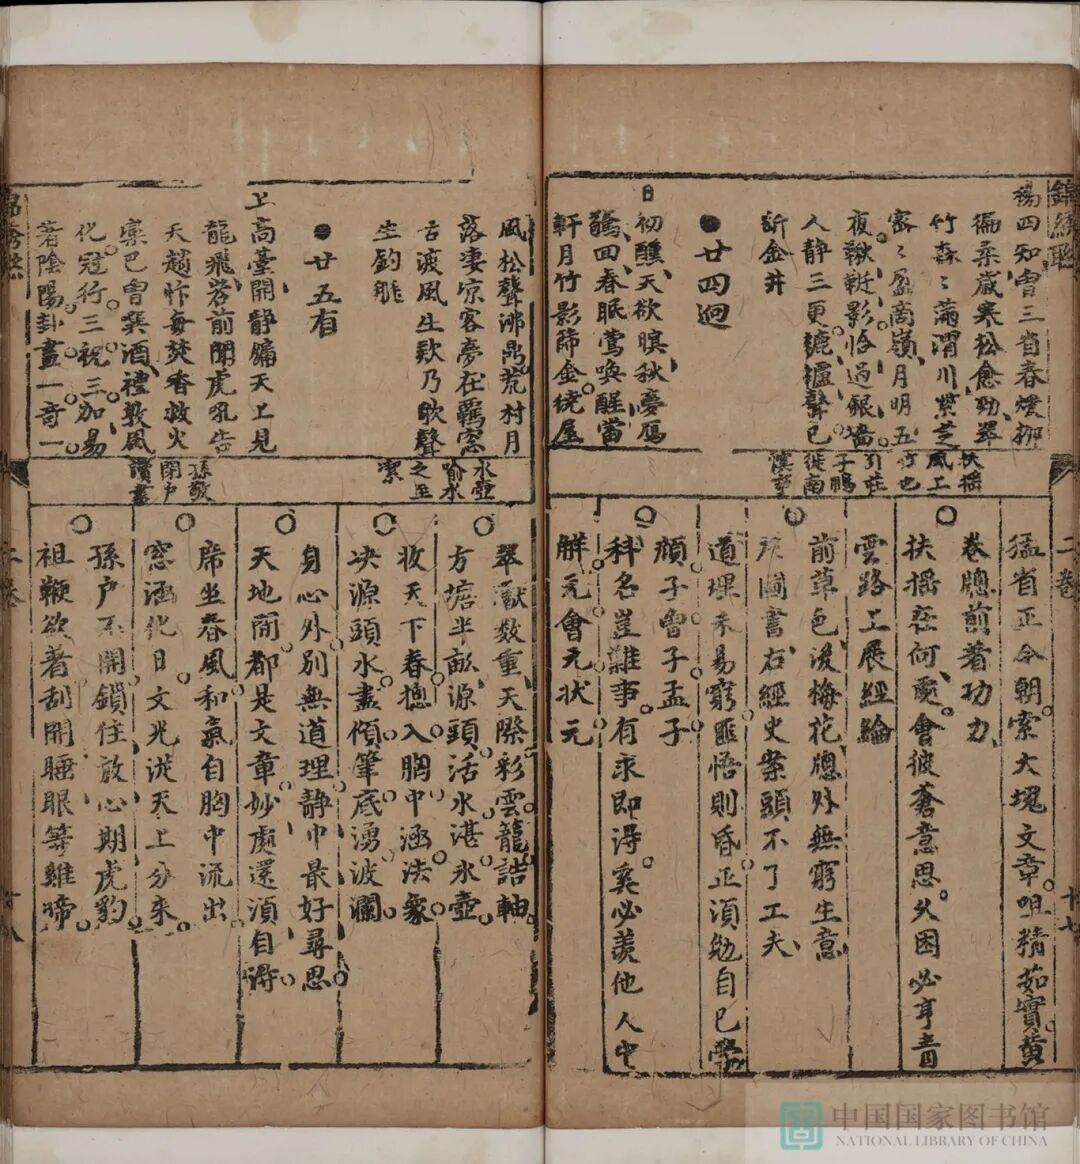 錦綉聯
楊四知曾三省春煖柳
徧柔歲寒松愈勁翠
竹森〻滿渭川紫芝
密〻盈商嶺月明五
夜鞦韆影恰過銀墻
人靜三更轆轤聲已
訢金井
●廿四迥
日初醺天欲暝秋憂鴈
驚回春眠鶯喚醒當
軒月竹影篩金繞屋
扶搖
風上
竹也
引莊
子鵬
徙南
溟事
二卷
猛省正今朝索大塊文章咀精茹實黃
卷牕前着功力
扶搖在何處會彼蒼意思久困必亨青
雲路上展經綸
前草色後梅花牕外無窮生意
圖書右經史案頭不了工夫
道理未易窮匪悟則昏正湏勉自己學
顏子曾子孟子
科名豈難事有求即得奚必羨他人中
解元會元狀元
十七
風松聲沸鼎荒村月
落凄凉客夢在羈窓
古渡風生欵乃歌聲
生釣艇
●廿五有
上高臺開靜牖天上見
龍飛岩前聞虎吼告
天趙忭每焚香救火
欒巴曾噀酒禮敦風
化冠行三祝三加易
著陰陽卦畫一奇一
氷壺
喻水
之至
潔
孫敬
閉戶
讀書
翠獻数重天際彩雲籠誥軸
方塘半畝源頭活水湛氷壺
收天下春摠入胸中涵法象
决源頭水盡傾筆底湧波瀾
身心外別無道理靜中最好尋思
天地間都是文章妙處還湏自得
席坐春風和氣自胸中流出
窓涵化日文光從天上分來
孫户不開鎖住放心期虎豹
祖鞭欲著刮開睡眼等雞啼
十八
中国国家图书馆
NATIONAL LIBRARY OF CHINA